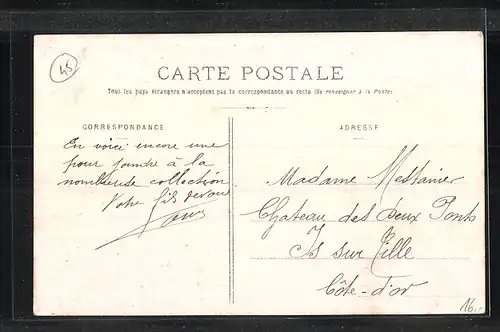 45
CARTE POSTALE
Tous les pays étrangers n'acceptent pas la correspondance au recto (Se renseigner à la Poste)
CORRESPONDANCE
ADRESSE
En voici encore une
pour joindre à la
nombreuse collection
Votre fils dévoué
Madame
Chateau des Deux Ponts
Is sur Tille
Côte-d'or
16.-